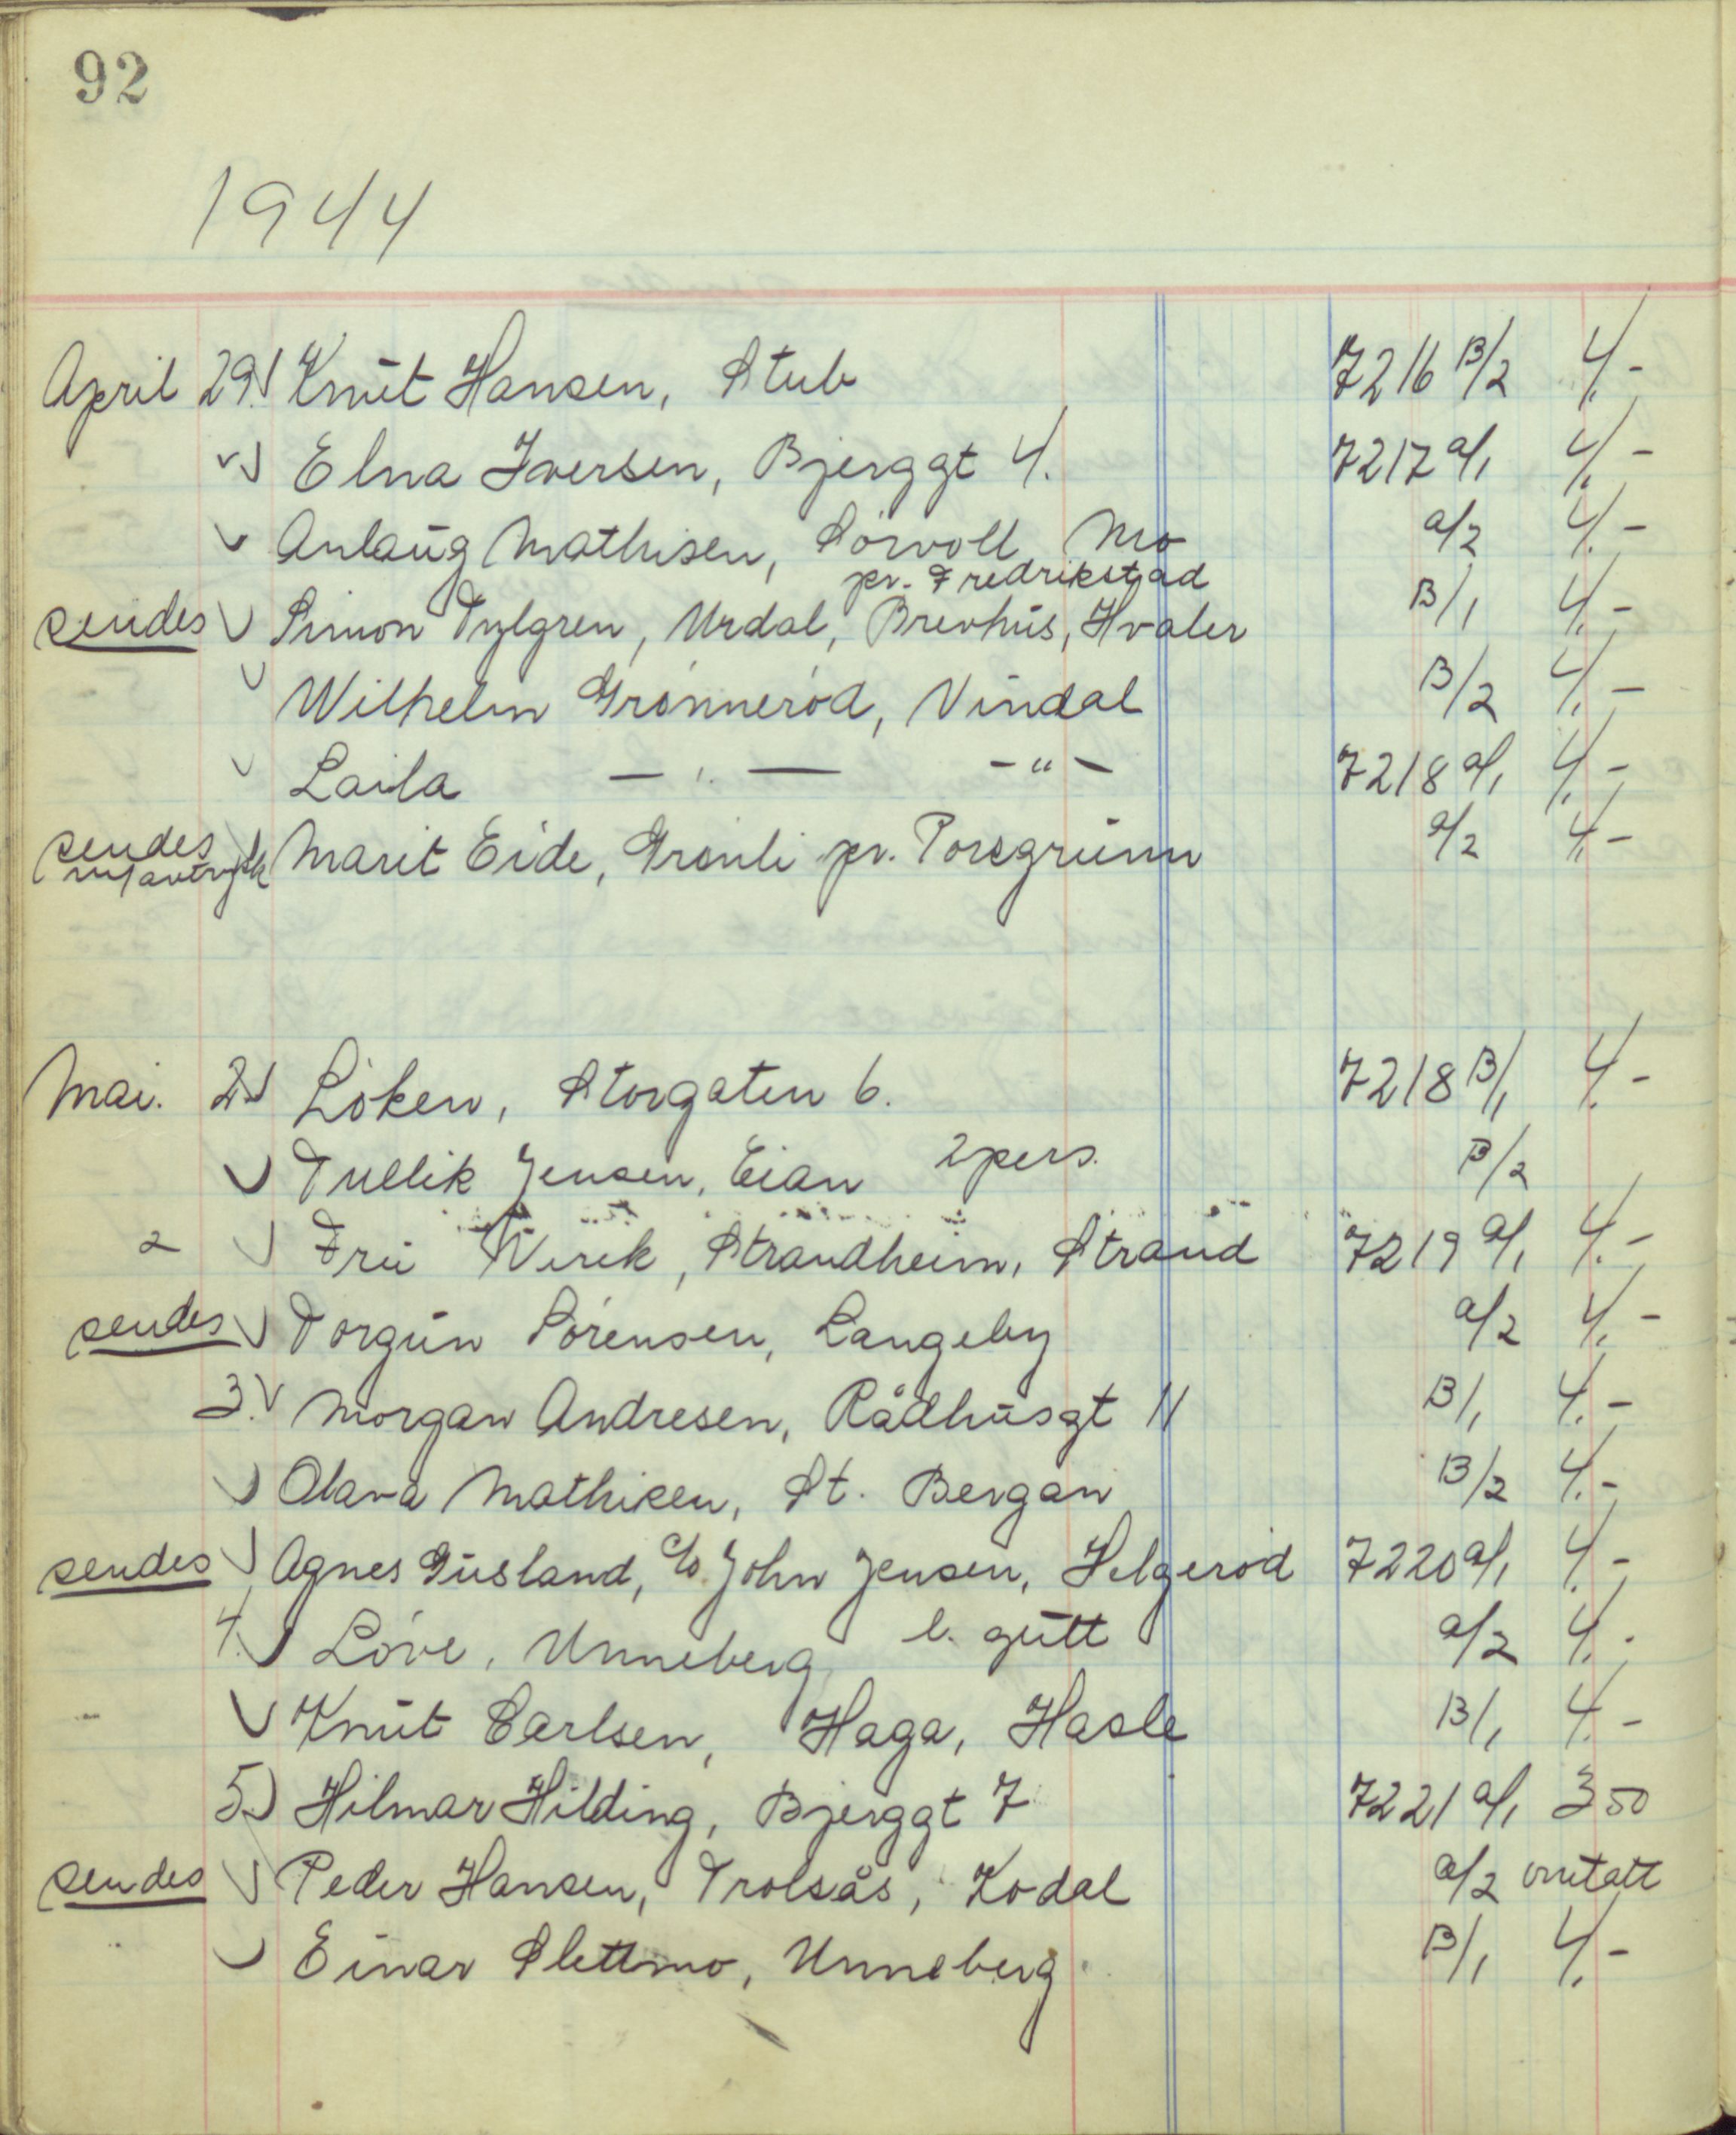 92
1944
April 29. Knut Hansen, Stub 7216 B/2 4,-
Elna Iversen, Bjerggt 4. 7217 a/1 4,-
Anlaug Mathisen, Sörvoll, Mo a/2 4,-
pr. Fredrikstad
sendes Simon Tylgren, Urdal, Brevhus, Hvaler B/1 4,-
Wilhelm Grønnerød, Vindal B/2 4,-
Laila — " — - " - 7218 a/1 4,-
sendes
m/avtrykk Marit Eide, Grønli pr. Porsgrunn a/2 4,-
Mai. 2. Löken, Storgaten 6. 7218 B/1 4.-
Tullik Jensen, Eian 2 pers. B/2
2 Fru Virik, Strandheim, Strand 7219 a/1 4.-
sendes Torgun Sørensen, Langeby a/2 4,-
3. Morgan Andresen, Rådhusgt 11 B/1 4.-
Olava Mathisen, St. Bergan B/2 4.-
sendes Agnes Gusland, c/o John Jensen, Helgerød 7220 a/1 4,-
4. Löve, Unneberg l. gutt a/2 4.-
Knut Carlsen, Haga, Hasle B/1 4.-
5. Hilmar Hilding, Bjerggt 7 7221 a/1 3 50
sendes Peder Hansen, Trolsås, Kodal a/2 omtatt
Einar Slettmo, Unneberg B/1 4,-